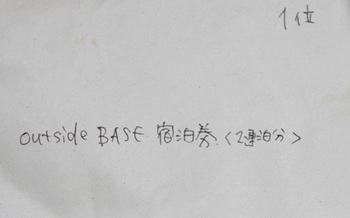 1位
outside BASE 宿泊券 <2連泊分>